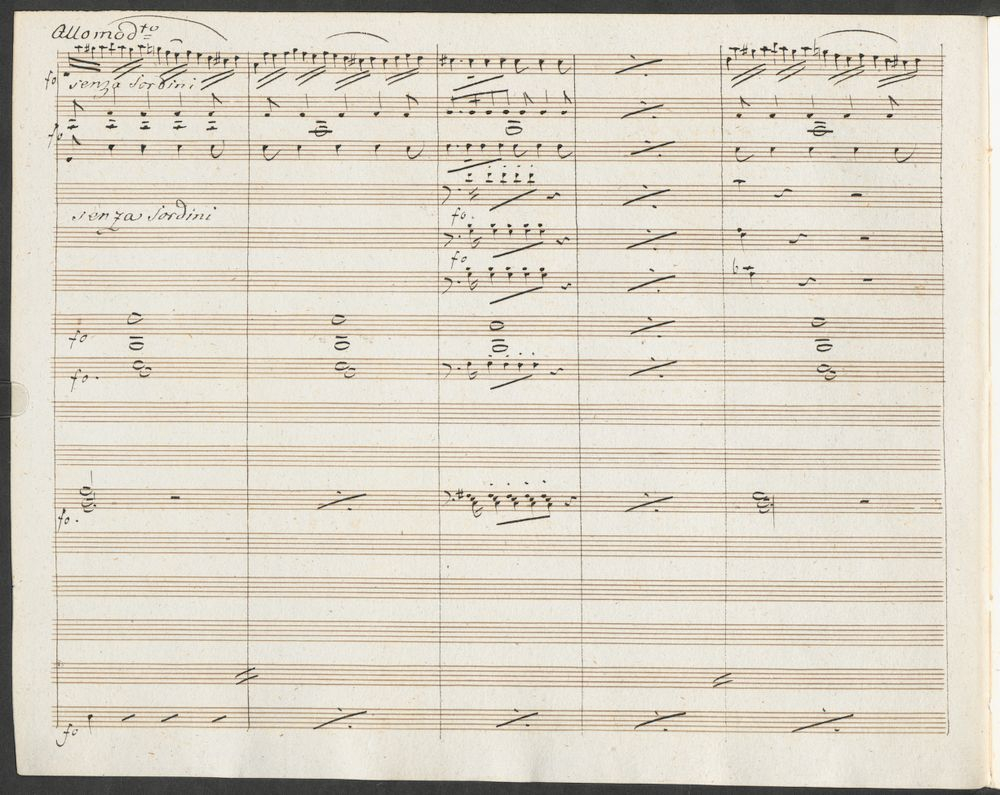 Allo modto
fo
senza Sordini
fo
senza Sordini
fo.
fo
fo
fo.
fo.
fo